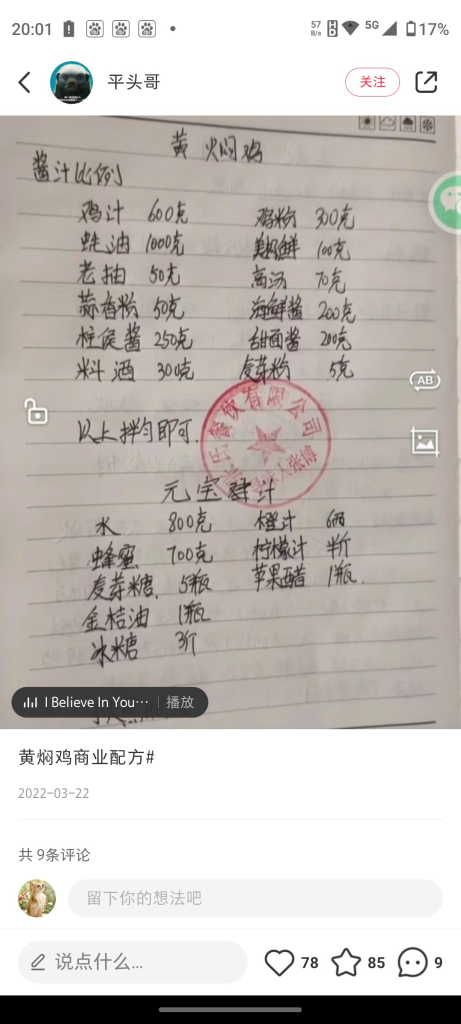 20:01
57 B/s
5G
17%
平头哥
关注
黄焖鸡
酱汁比例
鸡汁 600克 鸡粉 300克
蚝油 1000克 100克
老抽 50克 高汤 70克
蒜香粉 50克 海鲜酱 200克
柱侯酱 250克 甜面酱 200克
料酒 300克 麦芽粉 5克
以上拌匀即可.
有限公司
元宝 汁
水 800克 橙汁 6两
蜂蜜 700克 柠檬汁 半斤
麦芽糖. 5瓶 苹果醋 1瓶.
金桔油 1瓶
冰糖 3斤
AB
I Believe In You… 播放
黄焖鸡商业配方#
2022-03-22
共 9条评论
留下你的想法吧
说点什么...
78
85
9